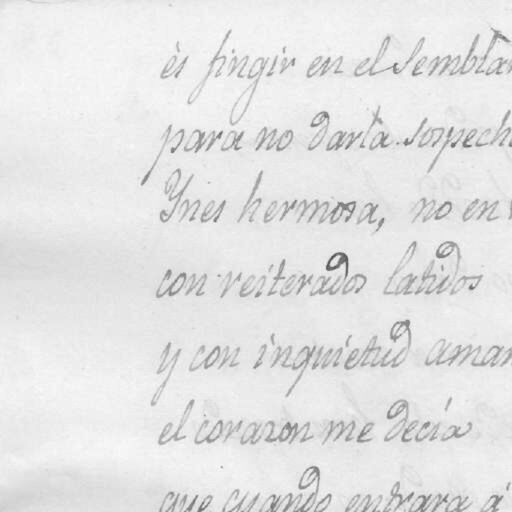 ès fingir en el sembla
para no darla sospech
Ynes hermosa, no en
con reiterados latidos
y con inquietud aman
el corazon me decía
que cuando entrara á